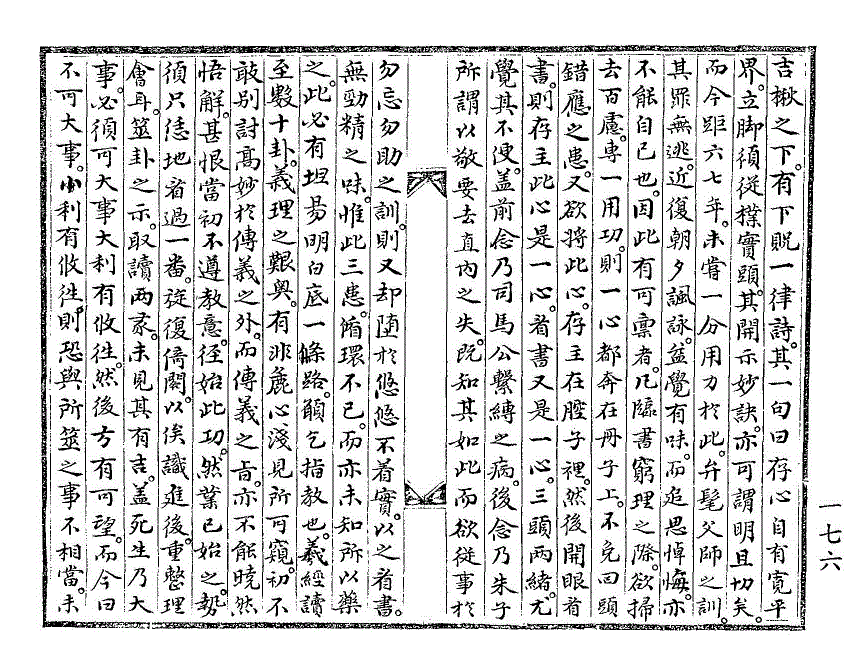 吉楸之下。有下貺一律詩。其一句曰存心自有寬平
界。立脚須從樸實頭。其開示妙訣。亦可謂明且切矣。
而今距六七年。未嘗一分用力於此。弁髦父師之訓。
其罪無逃。近復朝夕諷詠。益覺有味。而追思悼悔。亦
不能自已也。因此有可稟者。凡臨書窮理之際。欲掃
去百慮。專一用功。則一心都奔在冊子上。不免回頭
錯應之患。又欲將此心。存主在腔子裡。然後開眼看
書。則存主此心是一心。看書又是一心。三頭兩緖。尤
覺其不便。盖前念乃司馬公繫縛之病。後念乃朱子
所謂以敬要去直內之失。旣知其如此而欲從事於
勿忘勿助之訓。則又却墮於悠悠不着實。以之看書。
無勁精之味。惟此三患。循環不已。而亦未知所以藥
之。此必有坦易明白底一條路。願乞指敎也。羲經讀
至數十卦。義理之艱奧。有非麁心淺見所可窺。初不
敢別討高妙於傳義之外。而傳義之旨。亦不能曉然
悟解。甚恨當初不遵敎意。徑始此功。然業已始之。勢
須只恁地看過一番。旋復倚閣。以俟識進後。重整理
會耳。筮卦之示。取讀兩彖。未見其有吉。盖死生乃大
事。必須可大事大利有攸往。然後方有可望。而今曰
不可大事。小利有攸往。則恐與所筮之事不相當。未
一七六